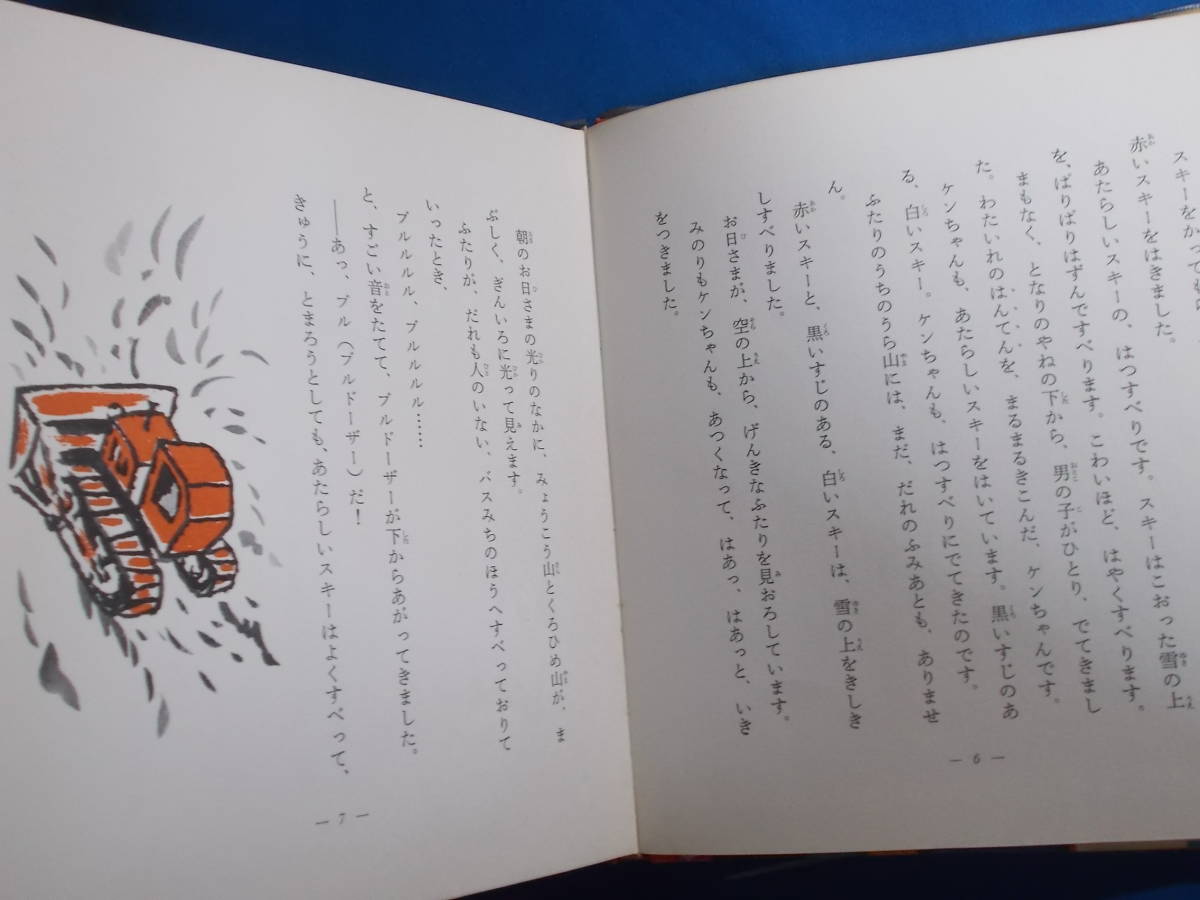 スキーをかっても
赤いスキーをはきました。
あたらしいスキーの、はつすべりです。スキーはこおった雪の上
を、ぱりぱりはずんですべります。こわいほど、はやくすべります。
まもなく、となりのやねの下から、男の子がひとり、でてきまし
た。わたいれのはんてんを、まるまるきこんだ、ケンちゃんです。
ケンちゃんも、あたらしいスキーをはいています。黒いすじのあ
る、白いスキー。ケンちゃんも、はつすべりにでてきたのです。
ふたりのうちのうら山には、まだ、だれのふみあとも、ありませ
ん。
赤いスキーと、黒いすじのある、白いスキーは、雪の上をきしき
しすべりました。
お日さまが、空の上から、げんきなふたりを見おろしています。
みのりもケンちゃんも、あつくなって、はあっ、はあっと、いき
をつきました。
— 6 —
朝のお日さまの光りのなかに、みょうこう山とくろひめ山が、ま
ぶしく、ぎんいろに光って見えます。
ふたりが、だれも人のいない、バスみちのほうへすべっておりて
いったとき、
ブルルルル、ブルルルル……
と、すごい音をたてて、ブルドーザーが下からあがってきました。
——あっ、ブル（ブルドーザー）だ！
きゅうに、とまろうとしても、あたらしいスキーはよくすべって、
— 7 —